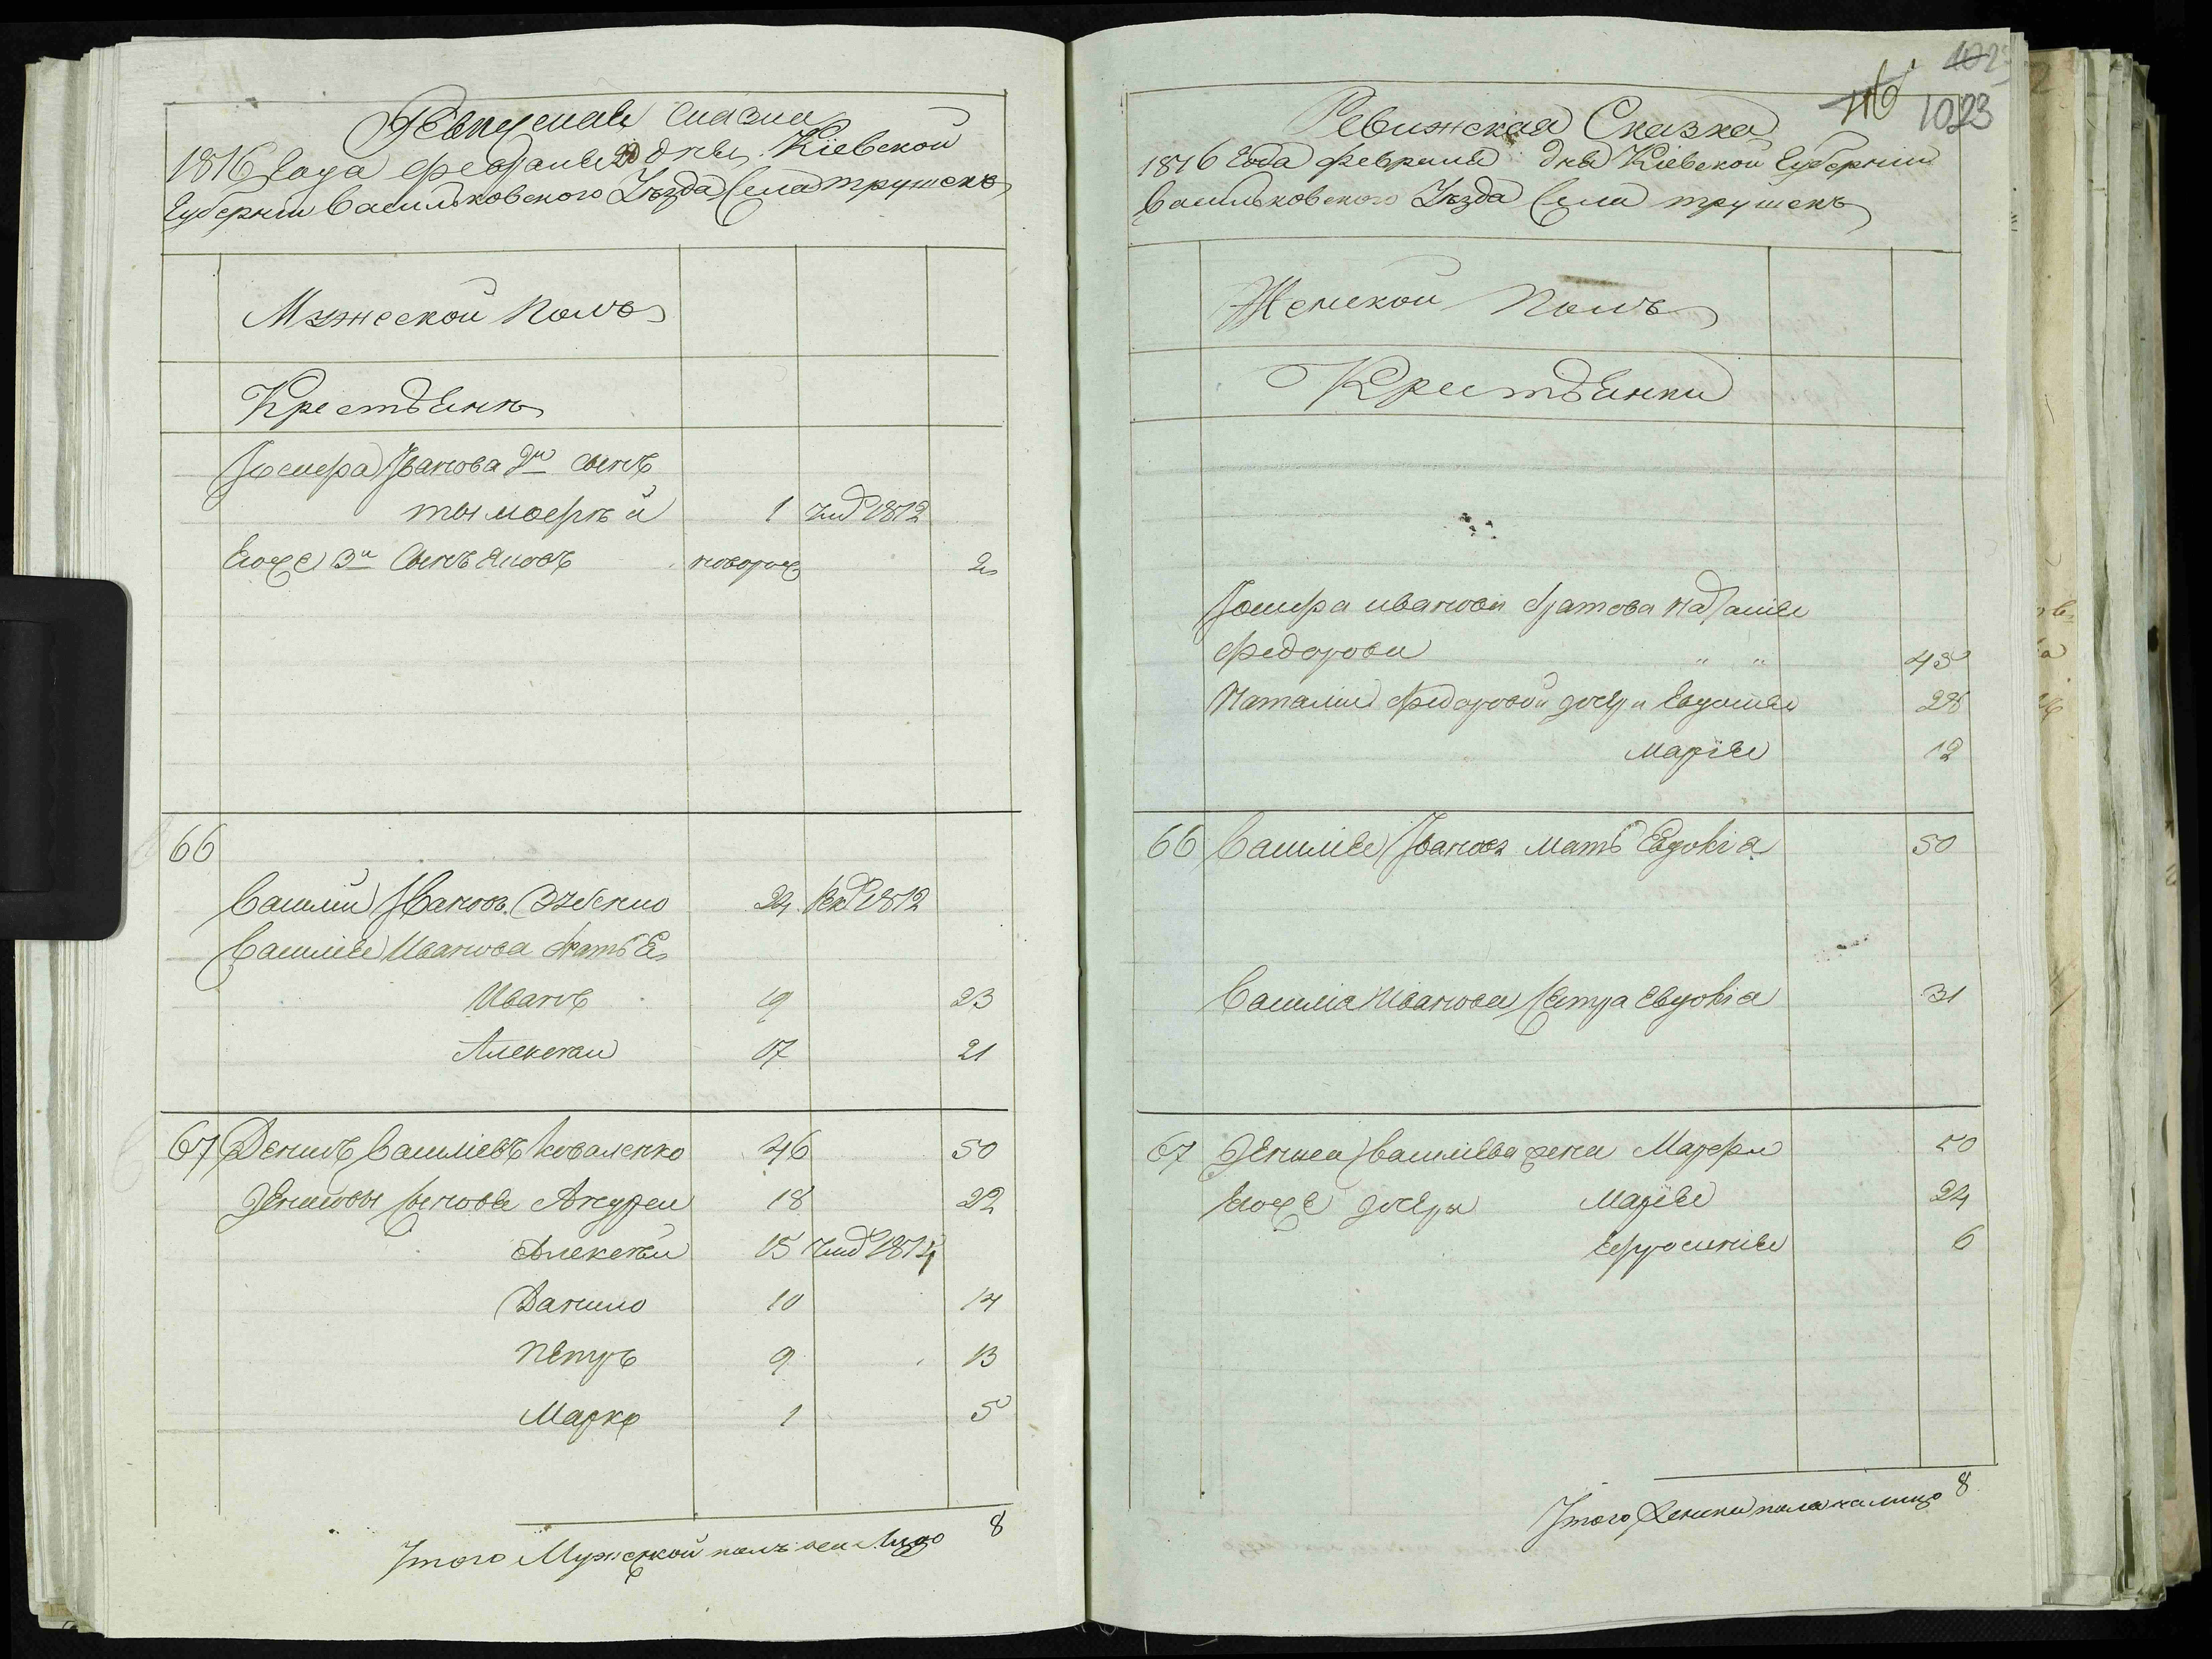 Ревизская сказка
1816 Года февраля 20 дня Кіевской
Губерніи Васильковского Уѣзда Села трушекъ
Мужеской Полъ
Крестьянъ
Іосифа Іванова 2й сынъ
тымофѣй 1 умр 1812
Егоже 3й Сынъ Яковъ новорож 2
66
Василій Івановъ Зубенко 24 рек 1812
Василія Иванова братья
Иванъ 19 23
Алексѣй 17 21
67 Денисъ Василіевъ Коваленко 46 50
Денисовы сыновья Андрей 18 22
Алексѣй 15 умр 1814
Данило 10 14
Петръ 9 13
Марко 1 5
Ітого Мужеской полъ на лицо 8
1023
Ревижская Сказка
1816 Года февраля дня Кіевской Губерніи
Васильковского Уѣзда Села трушекъ
Женской Полъ
Крестьянки
Іосифа иванова братова Наталія
федорова " " 45
Наталіи федоровой дочери Евдокія 28
Марія 12
66 Василія Іванова мать Евдокія 50
Василія Иванова Сестра Евдокія 31
67 Дениса Василіева жена Марфа 50
Егоже дочери Марія 24
Ефросинія 6
Ітого Женска пола на лицо 8